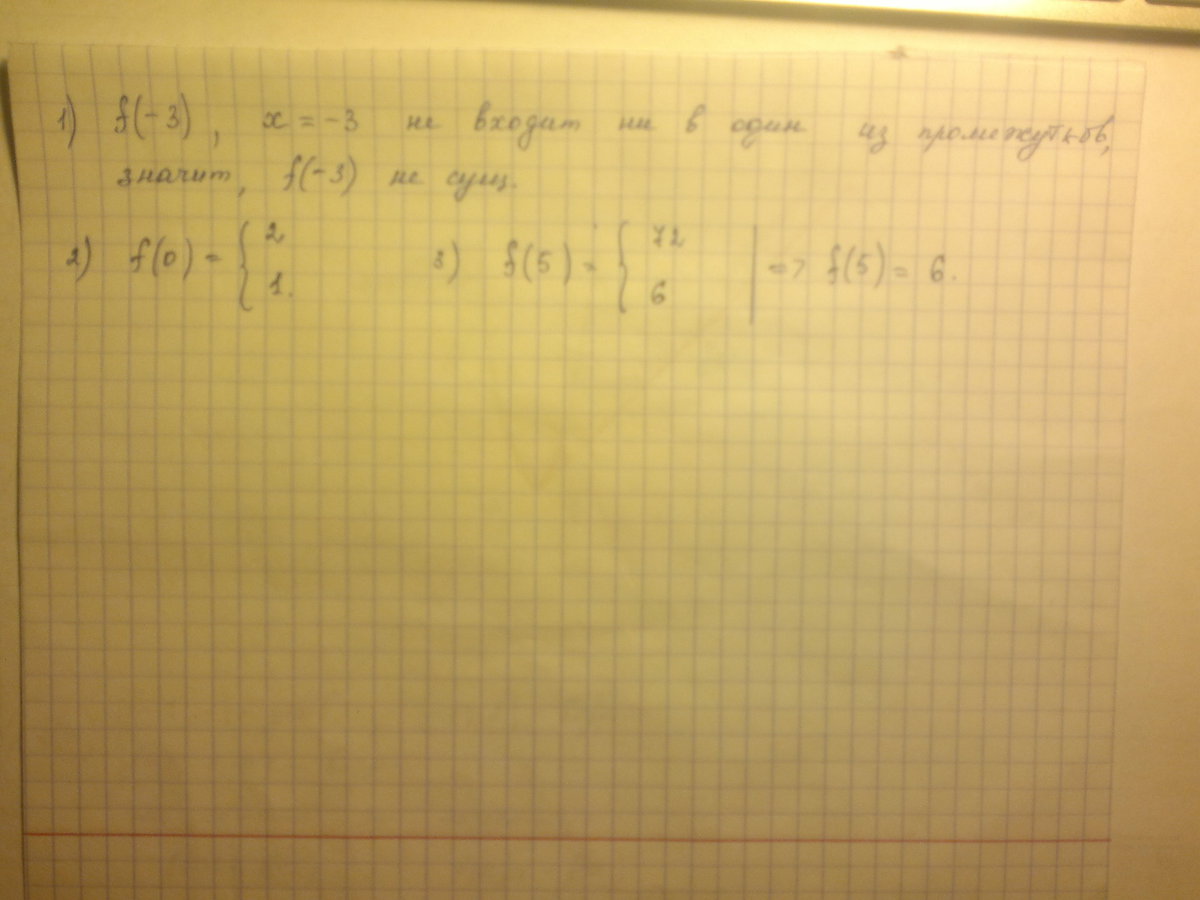 1) f(-3), x = -3 не входит ни в один из промежутков,
значит, f(-3) не сущ.
2) f(0) = { 2 1. 3) f(5) = { 72 6 | => f(5) = 6.